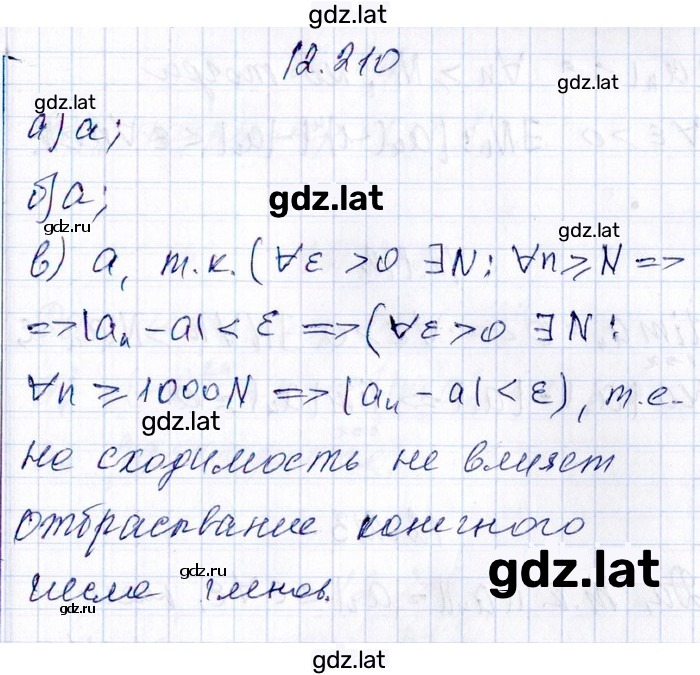 gdz.lat
12.210
gdz.lat
gdz.lat
а) а;
б) а;
gdz.lat
gdz.ru
gdz.lat
в) а, т.к. (∀ε > 0 ∃N: ∀n ≥ N =>
=> |aₙ - a| < ε => (∀ε > 0 ∃N:
∀n ≥ 1000N => |aₙ - a| < ε), т.е.
gdz.lat
на сходимость не влияет
отбрасывание конечного
gdz.ru
gdz.lat
числа членов.
gdz.ru
gdz.lat